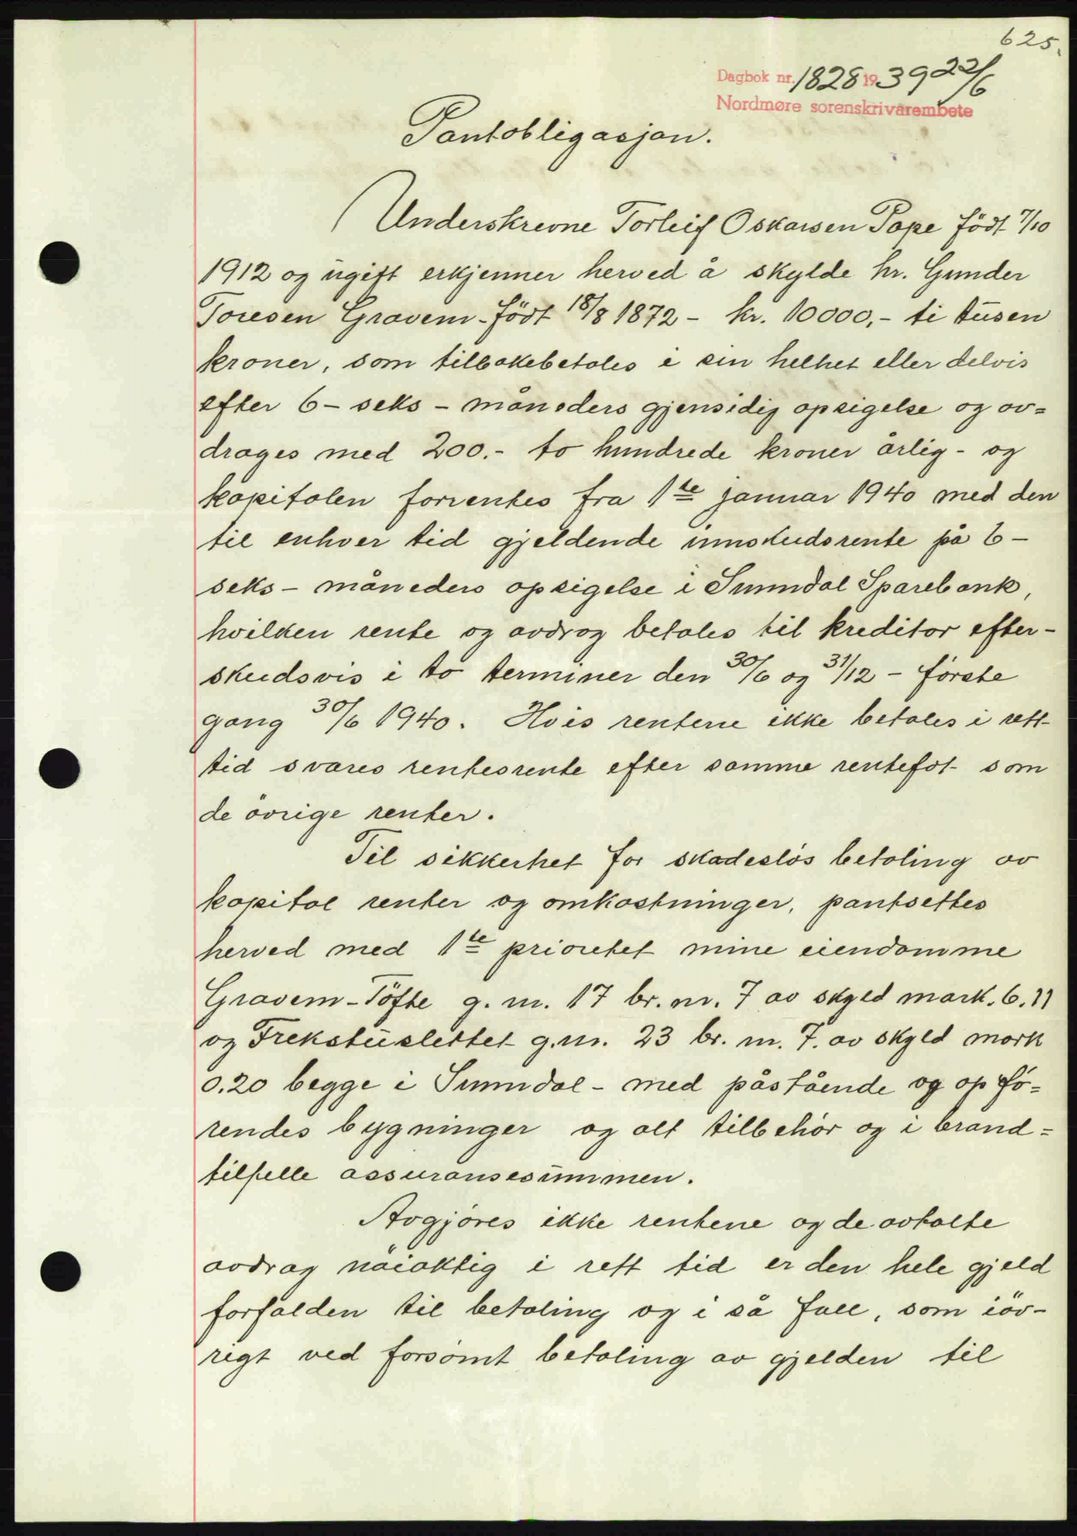 625.
Dagbok nr. 1828 1939 22/6
Nordmøre sorenskrivarembete
Pantobligasjon.
Underskrevne Torleif Oskarsen Pape født 7/10
1912 og ugift erkjenner herved å skylde hr. Gunder
Toresen Gravem - født 18/8 1872 - kr. 10000,- ti tusen
kroner, som tilbakebetales i sin helhet eller delvis
efter 6 - seks - måneders gjensidig opsigelse og av=
drages med 200.- to hundrede kroner årlig - og
kapitalen forrentes fra 1te januar 1940 med den
til enhver tid gjeldende innskudsrente på 6 -
seks - måneders opsigelse i Sunndal Sparebank,
hvilken rente og avdrag betales til kreditor efter-
skudsvis i to terminer den 30/6 og 31/12 - første
gang 30/6 1940. Hvis rentene ikke betales i rett
tid svares rentesrente efter samme rentefot som
de övrige renter.
Til sikkerhet for skadesløs betaling av
kapital renter og omkostninger, pantsettes
herved med 1te prioritet mine eiendomme
Gravem-Töfte g. nr. 17 br. nr. 7 av skyld mark. 6.11
og Trekstuslettet g.nr. 23 br. nr. 7. av skyld mark
0.20 begge i Sunndal - med påstående og opfö=
rendes bygninger og alt tilbehör og i brand=
tilfelle assuransesummen.
Avgjöres ikke rentene og de avtalte
avdrag nöiaktig i rett tid er den hele gjeld
forfalden til betaling og i så fall, som iöv-
rigt ved forsømt betaling av gjelden til